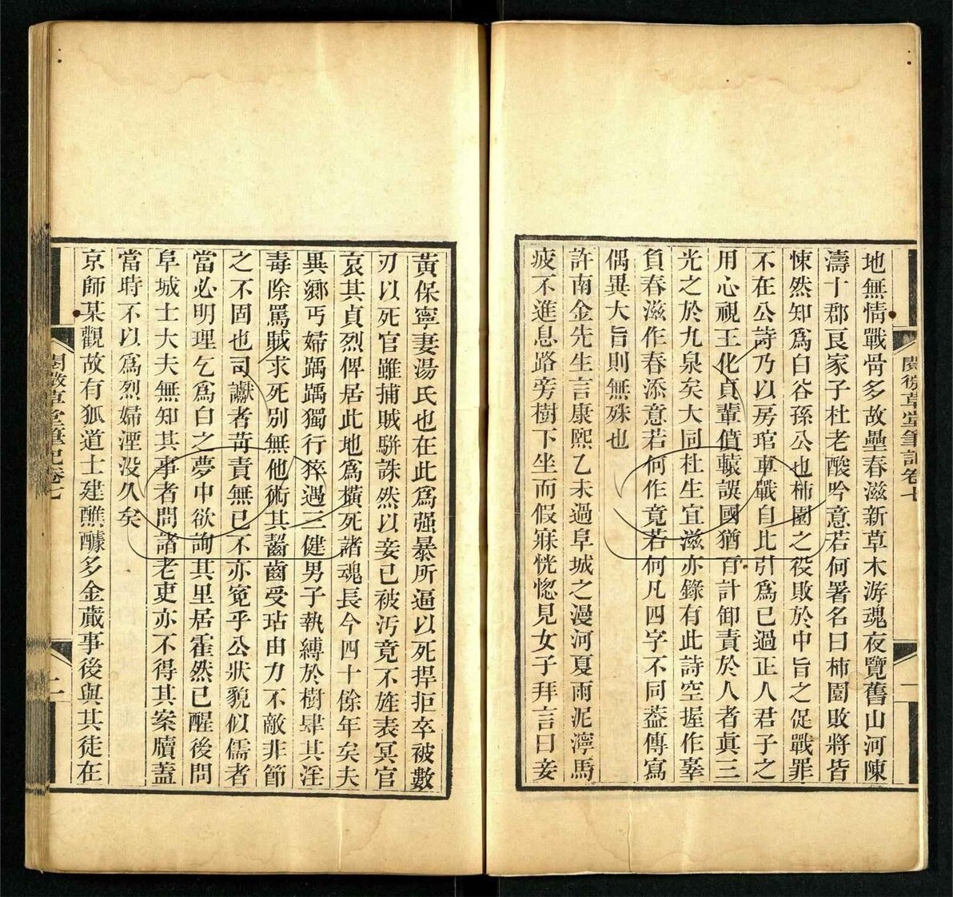 閱微草堂筆記卷七
一
地無情戰骨多故壘春滋新草木游魂夜覽舊山河陳
濤十郡良家子杜老酸吟意若何署名曰柿園敗將皆
悚然知爲白谷孫公也柿園之役敗於中旨之促戰罪
不在公詩乃以房琯車戰自比引爲已過正人君子之
用心視王化貞輩僨轅誤國猶百計卸責於人者眞三
光之於九泉矣大同杜生宜滋亦錄有此詩空握作辜
負春滋作春添意若何作竟若何凡四字不同葢傳寫
偶異大旨則無殊也
許南金先生言康熙乙未過阜城之漫河夏雨泥濘馬
疲不進息路旁樹下坐而假寐恍惚見女子拜言曰妾
黃保寧妻湯氏也在此爲强暴所逼以死捍拒卒被數
刃以死官雖捕賊駢誅然以妾已被汚竟不旌表冥官
哀其貞烈俾居此地爲橫死諸魂長今四十餘年矣夫
異鄕丐婦踽踽獨行猝遇三健男子執縛於樹肆其淫
毒除罵賊求死别無他術其齧齒受玷由力不敵非節
之不固也司讞者苛責無已不亦寃乎公狀貌似儒者
當必明理乞爲白之夢中欲詢其里居霍然已醒後問
阜城士大夫無知其事者問諸老吏亦不得其案牘蓋
當時不以爲烈婦湮没久矣
京師某觀故有狐道士建醮醵多金蕆事後與其徒在
閱微草堂筆記卷七
二